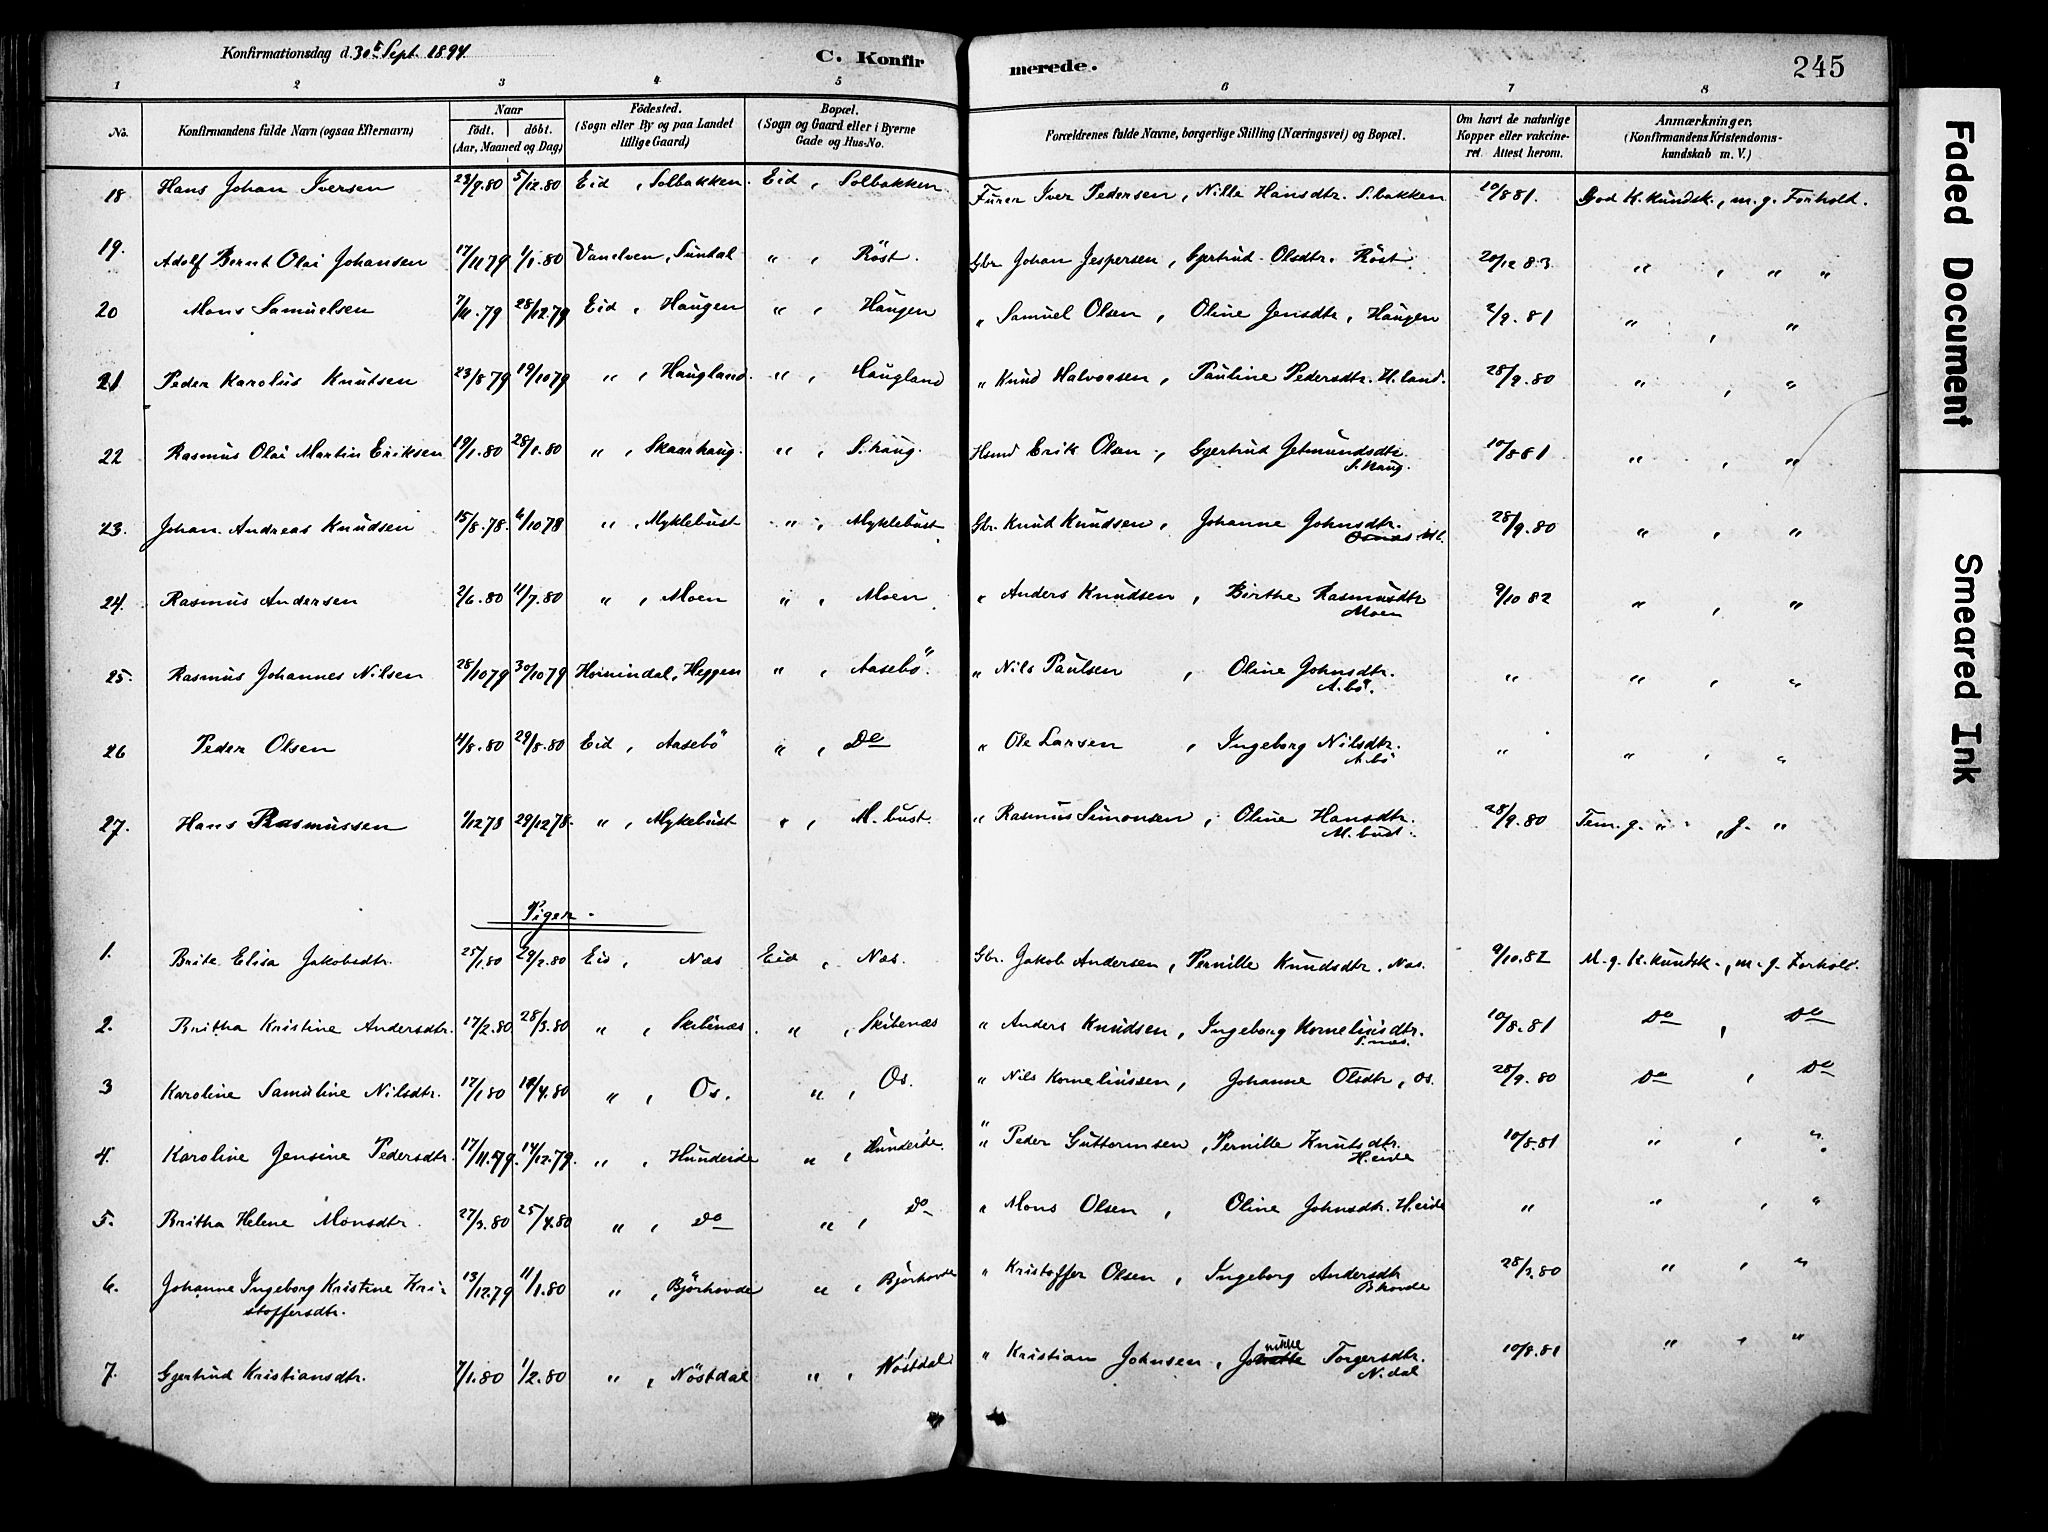 Konfirmationsdag d. 30te Sept. 1894.
C. Konfirmerede.
245
1 2 3 4 5 6 7 8
No. Konfirmandens fulde Navn (ogsaa Efternavn) Naar födt. döbt. (Aar, Maaned og Dag) Födested. (Sogn eller By og paa Landet tillige Gaard) Bopæl. (Sogn og Gaard eller i Byerne Gade og Hus-No. Forældrenes fulde Navne, borgerlige Stilling (Næringsvei) og Bopæl. Om havt de naturlige Kopper eller vakcineret. Attest herom. Anmærkninger. (Konfirmandens Kristendomskundskab m. V.)
18 Hans Johan Iversen 23/9.80 5/12.80 Eid, Solbakken. Eid, Solbakken. Furer Iver Pedersen, Nille Hansdtr. S.bakken 10/8 81. God K.kundsk., m.g. Forhold.
19. Adolf Bernt Olai Johansen 17/11 79 1/1.80 Vanelven, Sundal " , Röst. Gbr. Johan Jespersen, Gjertrud Olsdtr. Röst. 20/12 83 " , " "
20 Mons Samuelsen 7/11.79 28/12.79 Eid, Haugen " , Haugen " Samuel Olsen, Oline Jensdtr, Haugen 2/9.81 " , "
21 Peder Karolus Knutsen 23/8 79 19/10 79 " , Haugland. " , Haugland " Knud Halvorsen, Pauline Pedersdtr. H.land. 28/9.80 " , "
22 Rasmus Olai Martin Eriksen 19/1.80 28/1.80 " , Skaarhaug. " , S.haug. Husmd Erik Olsen, Gjertrud Jetmundsdtr. S.haug. 10/8 81 " , "
23. Johan Andreas Knudsen 15/8.78. 6/10 78 " , Myklebust " , Myklebust Gbr. Knud Knudsen, Johanne Johnsdtr. 28/9.80 " , "
24. Rasmus Andersen 2/6.80 11/7.80 " , Moen " , Moen " Anders Knudsen, Birthe Rasmusdtr Moen 9/10 82 " , "
25. Rasmus Johannes Nilsen 28/10 79 30/10 79 Hornindal, Heggen " , Aasebö. " Nils Paulsen, Oline Johnsdtr. A.bö. " " , "
26 Peder Olsen 4/8.80 29/8.80 Eid, Aasebö " , Do " Ole Larsen, Ingeborg Nilsdtr. A.bö " " , "
27. Hans Rasmussen 1/12 78 29/12 78. " , Mykebust " , M.bust. " Rasmus Simonsen, Oline Hansdtr. M.bust. 28/9.80 Tem. g. " , g. "
Piger.
1. Brite Elisa Jakobsdtr. 25/1.80 29/2.80 Eid, Nas Eid, Nas. Gbr. Jakob Andersen, Pernille Knudsdtr, Nas. 9/10.82 M.g. K.kundsk., m.g. Forhold.
2. Britha Kristine Andersdtr. 17/2.80 28/3.80 " , Skibenæs. " , Skibenæs " Anders Knudsen, Ingeborg Korneliusdtr. S.næs. 10/8.81 Do , Do
3 Karoline Samuline Nilsdtr. 17/1.80 18/4.80 " , Os. " , Os. " Nils Korneliussen, Johanne Olsdtr, Os. 28/9.80 Do , Do
4. Karoline Jensine Pedersdtr. 17/11.79. 14/12.79. " , Hundeide " , Hundeide. " Peder Guttormsen, Pernille Knutsdtr. H.eide 10/8.81 " , "
5. Britha Helene Monsdtr. 27/3.80 25/4.80 " , Do " , Do " Mons Olsen, Oline Johnsdtr. H.eide " " , "
6. Johanne Ingeborg Kristine Kristoffersdtr. 13/12.79 11/1.80 " , Björhovde " , Björhovde " Kristoffer Olsen, Ingeborg Andersdtr B.hovde 28/9.80 " , "
7. Gjertrud Kristiansdtr. 7/1.80 1/2.80 " , Nöstdal " , Nöstdal " Kristian Johnsen, Torgersdtr. N.dal 10/8.81 " , "
Faded Document
Smeared Ink